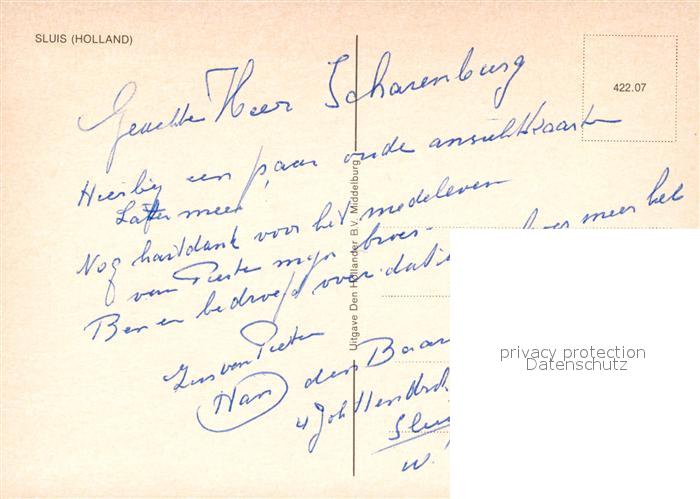 SLUIS (HOLLAND)
422.07
Geachte Heer Scharenburg
Hierbij een paar oude ansichtkaarten
Later meer
Nog hartdank voor het medeleven
van Pieter mijn broer meer het
Ben er bedroefd over dat
van Pieter
Han den Baar
4 Joh Hendrik
Sluis
W.
Uitgave Den Hollander B.V. Middelburg
privacy protection
Datenschutz